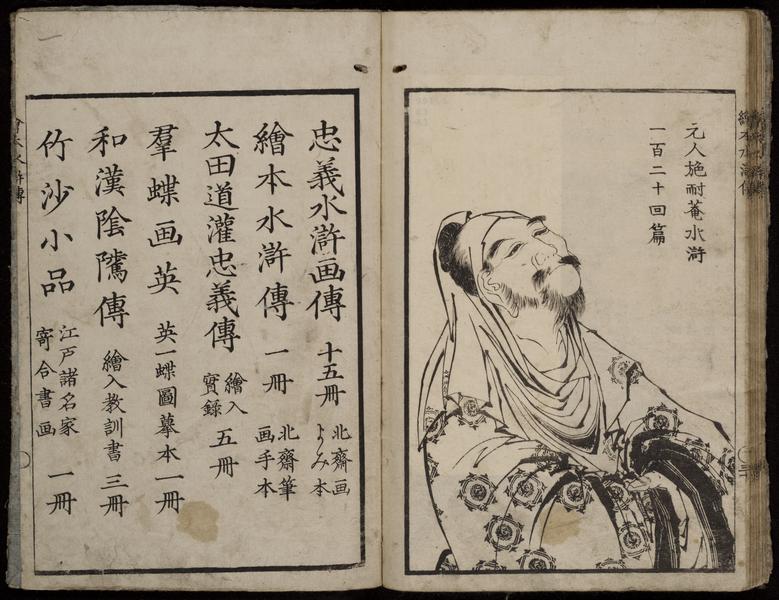 元人施耐菴水滸
一百二十回篇
忠義水滸画傳 十五冊 北齋画 よみ本
繪本水滸傳 一冊 北齋筆 画手本
太田道灌忠義傳 繪入 實錄 五冊
羣蝶画英 英一蝶圖摹本 一冊
和漢陰隲傳 繪入教訓書 三冊
竹沙小品 江戸諸名家 寄合書画 一冊
繪本水滸傳